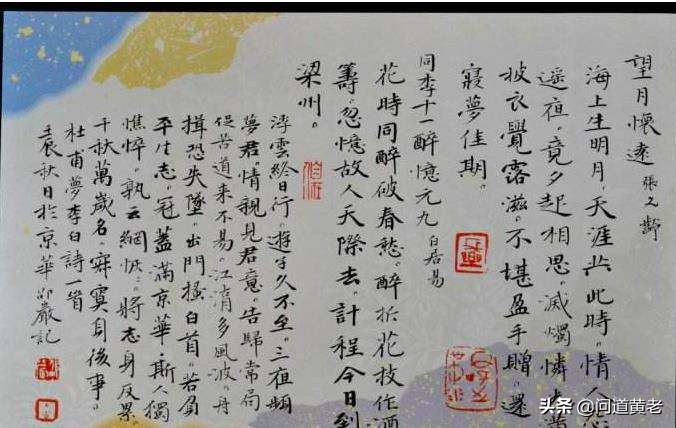 望月懷遠 張九齡
海上生明月。天涯共此時。情人怨
遥夜。竟夕起相思。滅燭憐光滿
披衣覺露滋。不堪盈手贈。還
寢夢佳期。
同李十一醉憶元九 白居易
花時同醉破春愁。醉折花枝作酒
籌。忽憶故人天際去。計程今日到
梁州。
浮雲終日行。遊子久不至。三夜頻
夢君。情親見君意。告歸常局
促。苦道来不易。江湖多風波。舟
楫恐失墜。出門搔白首。若負
平生志。冠蓋滿京華。斯人獨
憔悴。孰云網恢。將身反累。
千秋萬歲名。寂寞身後事。
杜甫夢李白詩一首
壬辰秋日於京華 巖記
头条 @问道黄老